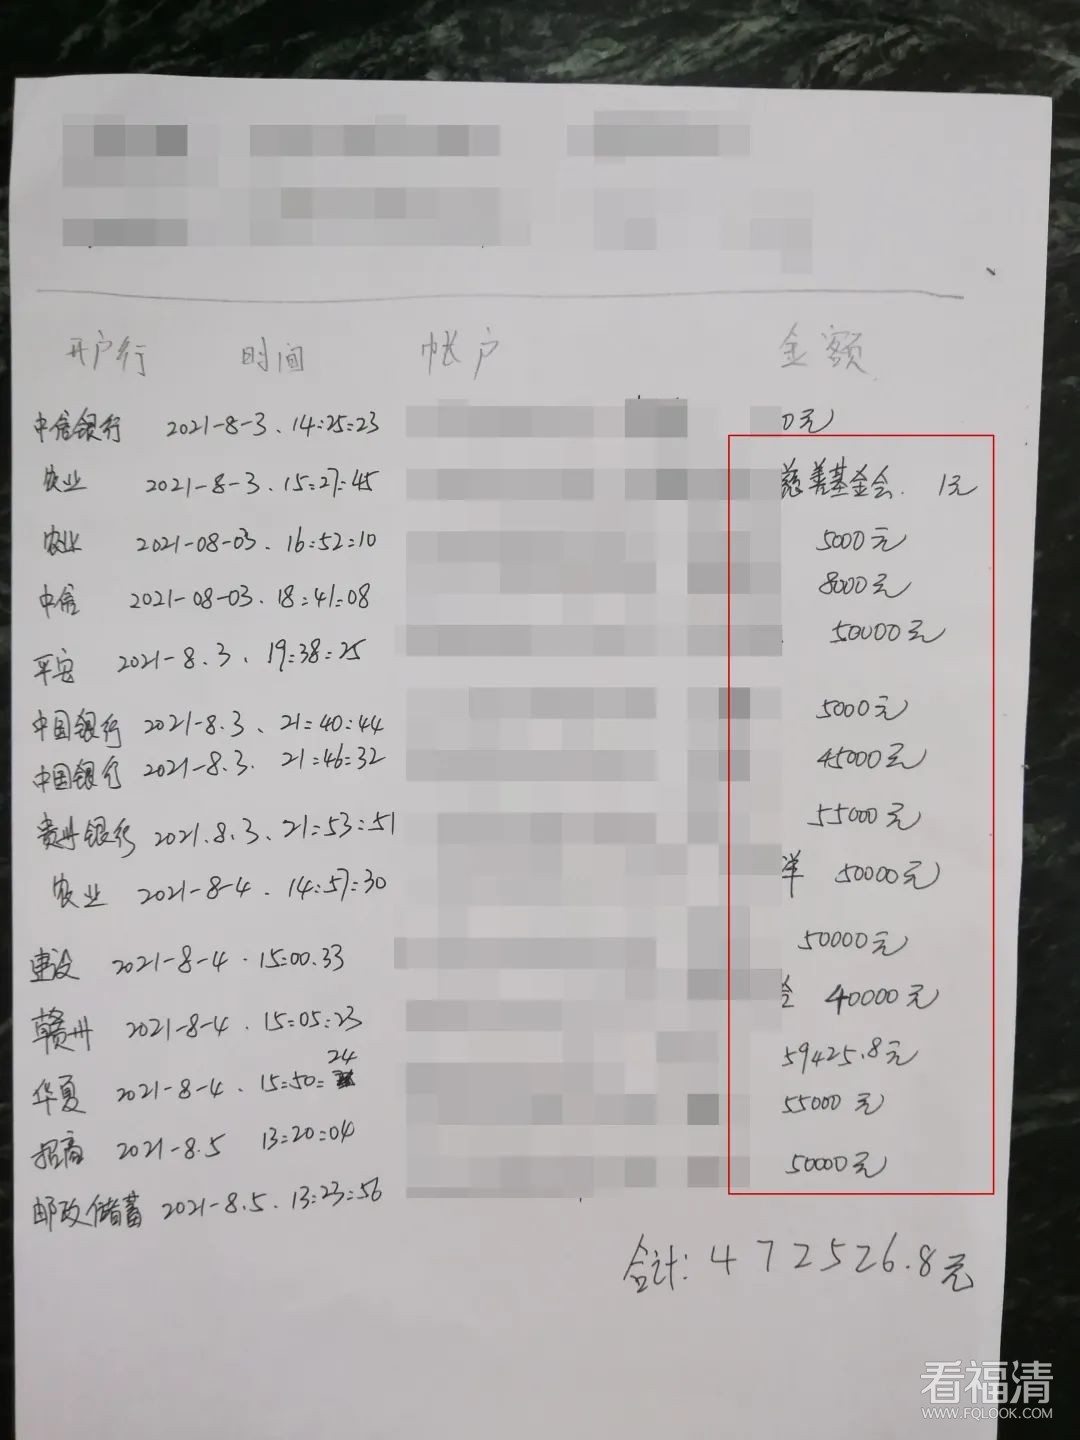 开户行 时间 帐户 金额
中信银行 2021-8-3. 14:25:23 0元
农业 2021-8-3. 15:27:45 慈善基金会. 1元
农业 2021-08-03. 16:52:10 5000元
中信 2021-08-03. 18:41:08 8000元
平安 2021-8.3. 19:38:25 50000元
中国银行 2021-8.3. 21:40:44 5000元
中国银行 2021-8.3. 21:46:32 45000元
贵州银行 2021.8.3. 21:53:51 55000元
农业 2021-8-4. 14:57:30 洋 50000元
建设 2021-8-4. 15:00.33 50000元
赣州 2021-8-4. 15:05:23 40000元
华夏 2021-8-4. 15:50:24 59425.8元
招商 2021-8.5 13:20:04 55000元
邮政储蓄 2021-8.5. 13:23:56 50000元
合计: 472526.8元
看福清
WWW.FQLOOK.COM